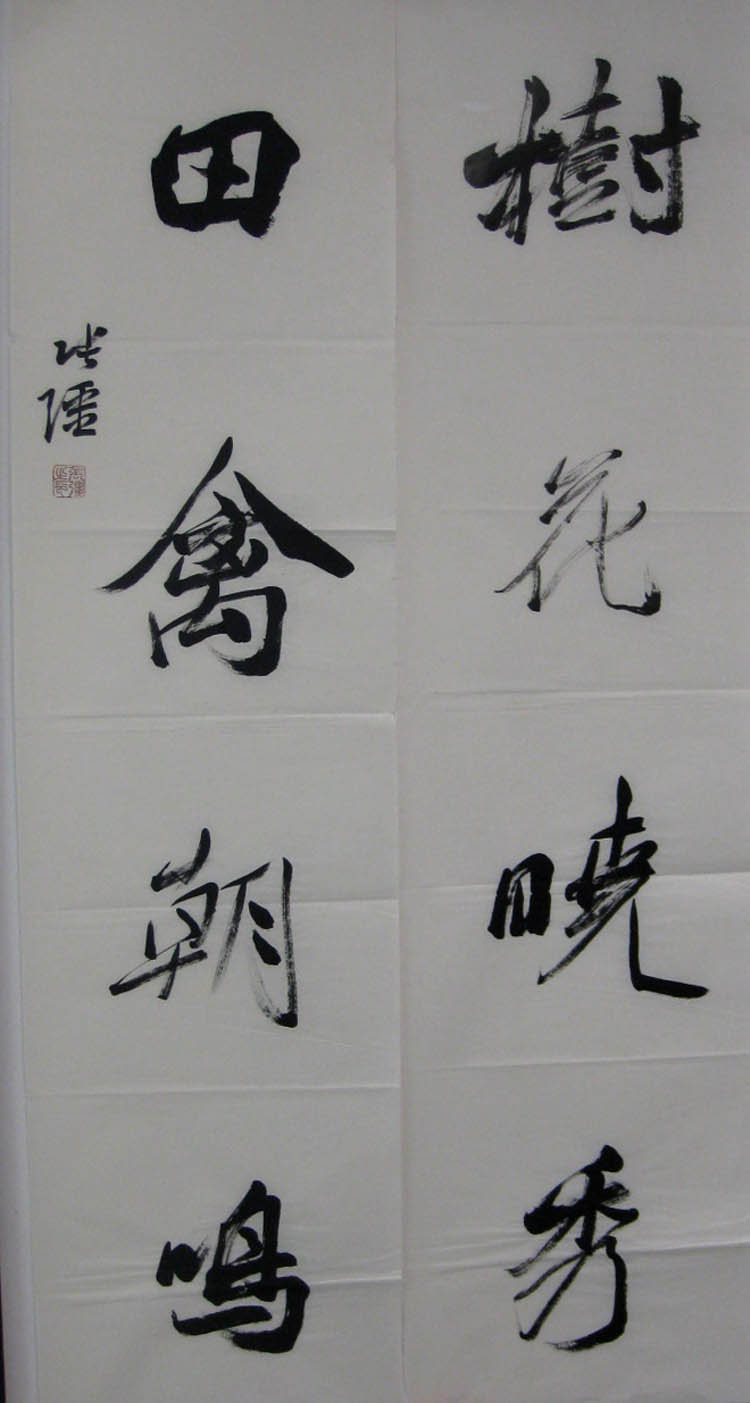 樹花曉秀
田禽朝鳴
张疆